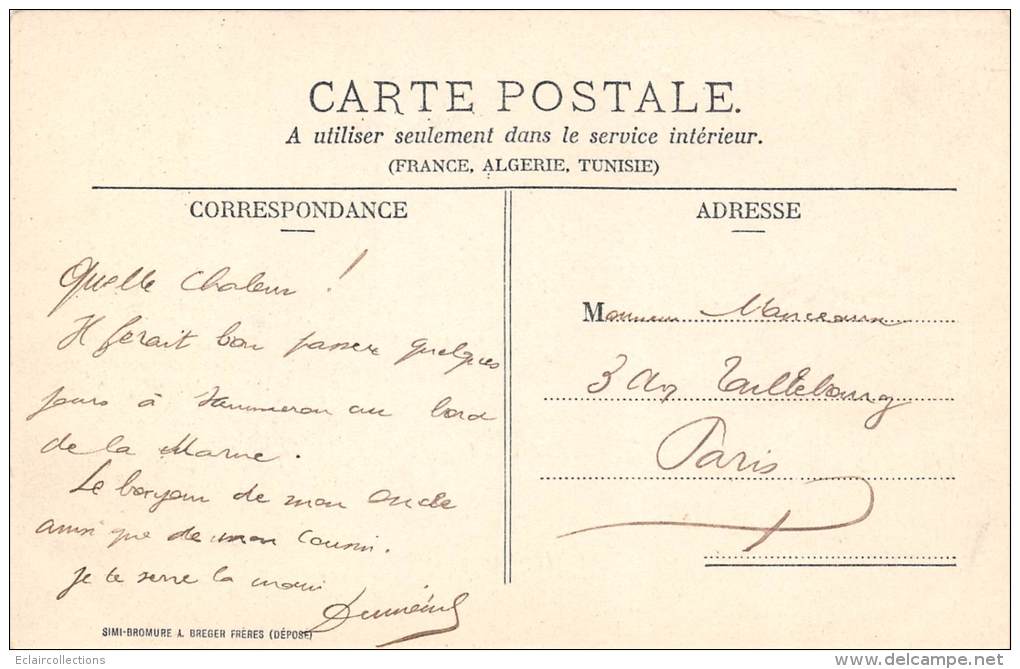 CARTE POSTALE.
A utiliser seulement dans le service intérieur.
(FRANCE, ALGERIE, TUNISIE)
CORRESPONDANCE
Quelle chaleur !
Il ferait bon passer quelques
jours à au bord
de la Marne.
Le bonjour de mon oncle
ainsi que de mon cousin.
Je te serre la main
SIMI-BROMURE A. BREGER FRÈRES (DÉPOSÉ)
ADRESSE
Monsieur
3 Av Taillebourg
Paris
Eclaircollections
delcampe.net